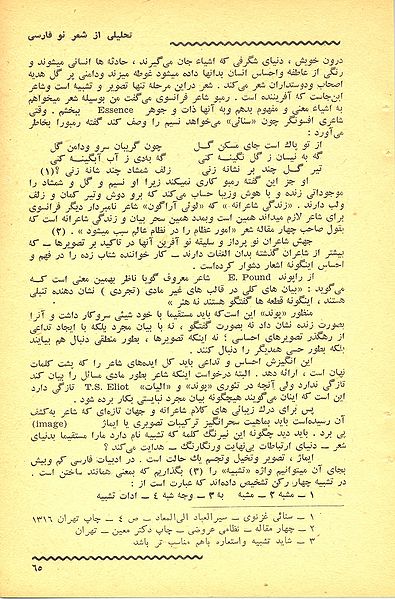 تحلیلی از شعر نو فارسی
درون خویش ، دنیای شگرفی که اشیاء جان می‌گیرند ، حادثه ها انسانی میشوند و
رنگی از عاطفه واحساس انسان بدانها داده میشود غوطه میزند ودامنی پر گل هدیه
اصحاب ودوستداران شعر می‌کند . شعر دراین مرحله تنها تصویر و تشبیه است وشاعر
این‌جاست که آفریننده است . رمبو شاعر فرانسوی می‌گفت من بوسیله شعر میخواهم
به اشیاء معنی و مفهوم بدهم وبه آنها ذات و جوهر Essence ببخشم . وقتی
شاعری افسونگر چون «سنائی» می‌خواهد نسیم را وصف کند گفته رمبورا بخاطر
می‌آورد :
از تو پاك است جای مسكن گـل چون گریبان سرو ودامن گل
گه به نیسان ز گل نگینـه کنی گه بادی ز آب آبگینـه کنی
تیر گـل چند بر نشانه زنی زلف شمشاد چند شانه زنی ؟(۱)
او جز این گفته رمبو کاری نمیکند زیرا او نسیم و گل و شمشاد را
موجوداتی زنده و با هوش وزیبا حساب می‌کند که برو دوش وتیر کنان و زلف
ولب دارند . «زندگی شاعرانه » که «لوئی آراگون» شاعر نامبردار دیگر فرانسوی
برای شاعر لازم میداند همین است وبمدد همین سحر بیان و زندگی شاعرانه است که
بقول صاحب چهار مقاله شعر «امور عظام را در نظام عالم سبب میشود » . (۲)
جهش شاعران نو پرداز و سلیقه نو آفرین آنها در تاکید بر تصویرها ــ که
بیشتر از شاعران گذشته بدان التفات دارند ــ کار خواننده شتاب زده را در فهم و
احساس اینگونه اشعار دشوار کرده‌است .
از راپوند E. Pound شاعر معروف گویا ناظر بهمین معنی است کـه
می‌گوید : «بیان های کلی در قالب های غیر مادی (تجردی ) نشان دهنده تنبلی
هستند ، اینگونه قطعه ها گفتگو هستند نه هنر »
منظور «پوند» این است‌که باید مستقیما با خود شیئی سروکار داشت و آنرا
بصورت زنده نشان داد نه بصورت گفتگو ، نه با بیان مجرد بلکه با ایجاد تداعی
از رهگذر تصویرهای احساسی ؛ نه اینکه تصویرها ، بطور منطقی دنبال هم بیایند
بلکه بطور حسی همدیگر را دنبال کنند .
این انگیزش احساس و تداعی باید کل ایده‌های شاعر را که پشت کلمات
نهان است ، ارائه دهد . البته درخواست اینکه شاعر بطور مادی مسائل را بیان کند
تازگی ندارد ولی آنچه در تئوری «پوند» و «الیات» T.S. Eliot تازگی دارد
این است که اینان می‌گویند هیچگونه بیان مجرد نبایستی بکار برده شود .
پس برای درك زیبائی های کلام شاعرانه و جهان تازه‌ای که شاعر به‌کشف
آن رسیده‌است باید بماهیت سحرانگیز ترکیبات تصویری یا ایماژ (image)
پی برد . باید دید چگونه این نیرنگ کلمه که تشبیه نام دارد مارا مستقیما بدنیای
شعر ــ دنیای ارتباطات بی‌نهایت ورنگارنگ ــ هدایت می‌کند ؟
ایماژ ، تصویر وتخیل وتجسم یك حالت است . در ادبیات فارسی کم وبیش
بجای آن میتوانیم واژه «تشبیه» را (۳) بگذاریم که بمعنی همانند ساختن است .
در تشبیه چهار رکن تشخیص داده‌اند که عبارت است از :
۱ ــ مشبه ۲ ــ مشبه به ۳ ــ وجه شبه ۴ ــ ادات تشبیه
۱ ــ سنائی غزنوی ــ سیرالعباد الی‌المعاد ــ ص ٤ ــ چاپ تهران ۱۳۱۶
۲ ــ چهار مقاله ــ نظامی عروضی ــ چاپ دکتر معین ــ تهران
۳ ــ شاید تشبیه واستعاره باهم مناسب تر باشد
۶۵